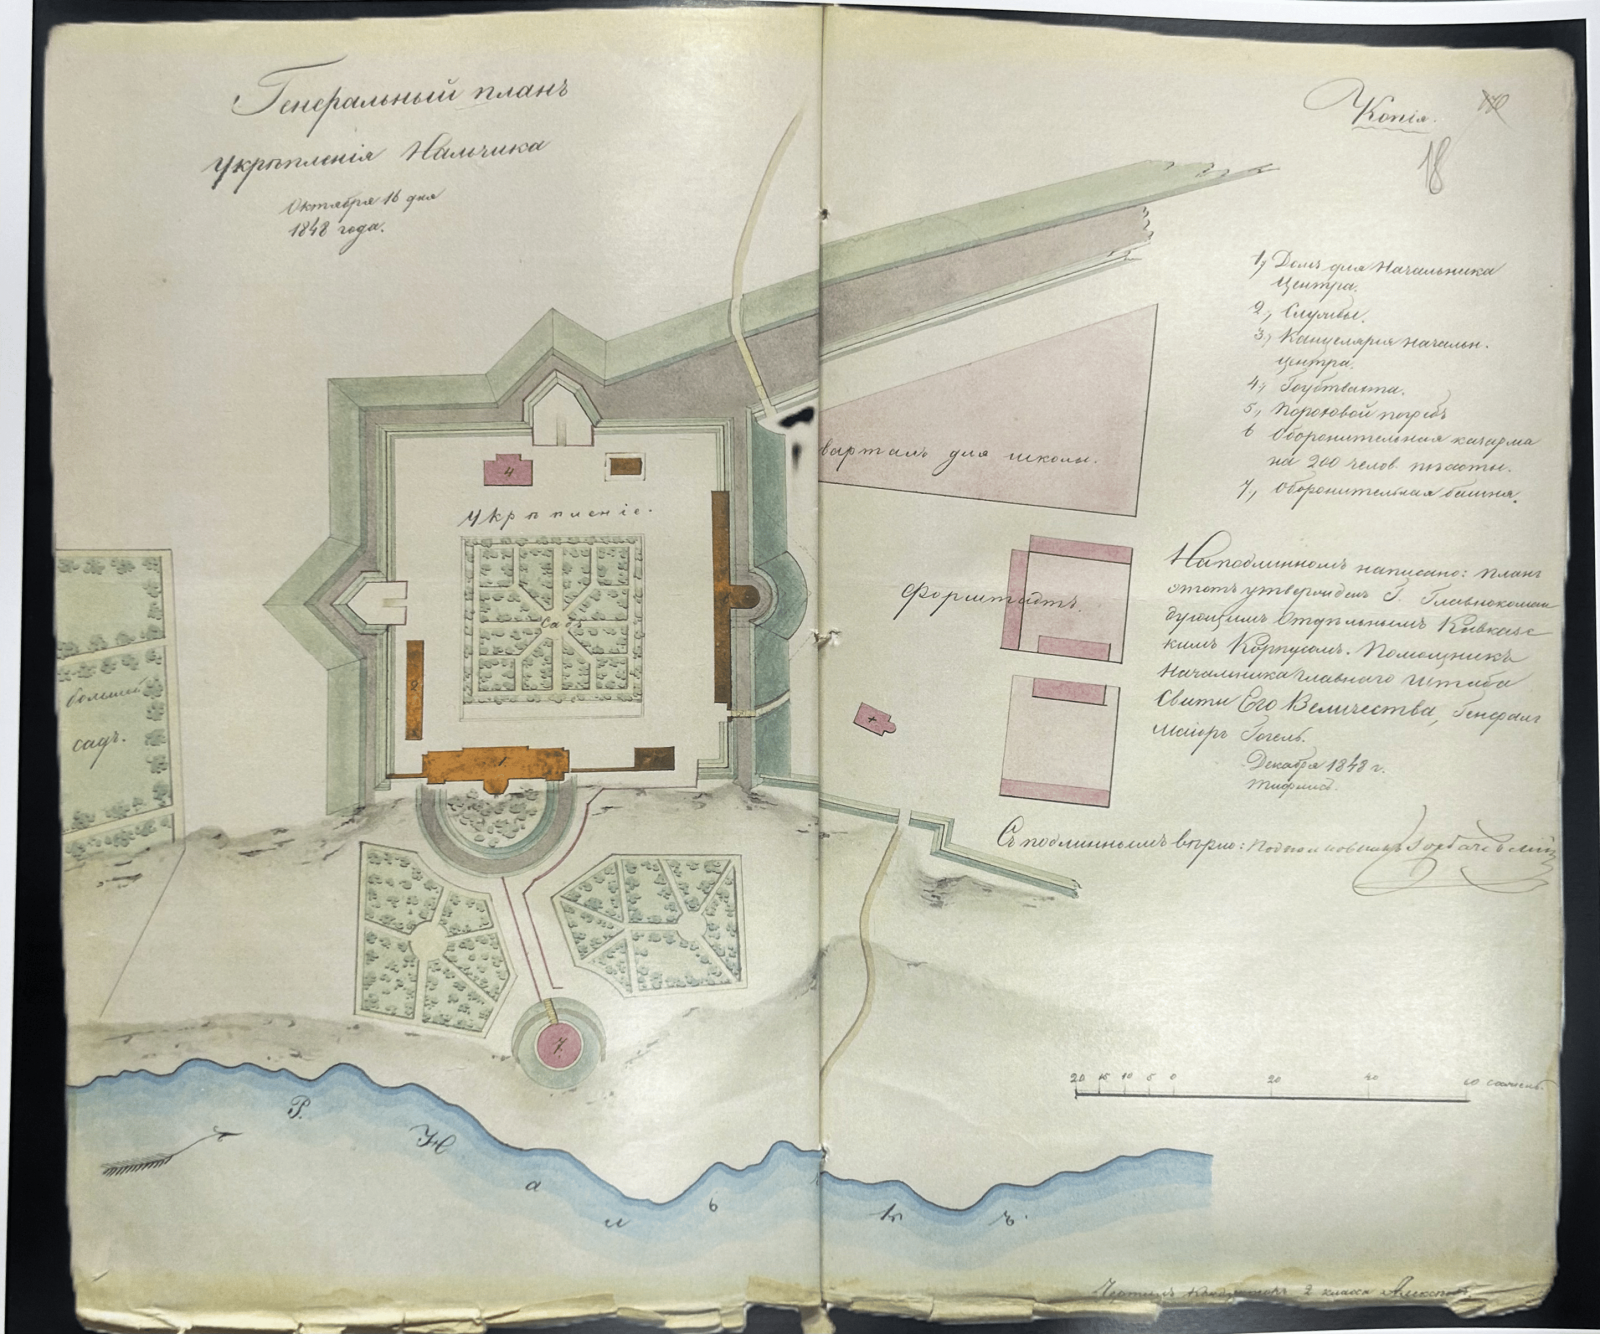 Генеральный планъ
Укрѣпленія Нальчика
Октября 16 дня
1848 года.
Копія.
18
1, Домъ для Начальника
Центра.
2, Службы.
3, Канцелярія Начальн.
центра.
4, Гоубтвахта.
5, Пороховой погребъ
6 Оборонительная казарма
на 200 челов. пѣхоты.
7, Оборонительная башня.
4
Укрѣпленіе.
Садъ
2
1
7
большой
садъ.
варталъ для школы.
Форштадтъ.
На подлинномъ написано: планъ
этотъ утвержденъ Г. Главнокоман
дующимъ Отдѣльнымъ Кавказс
кимъ Корпусомъ. Помощникъ
Начальника Главнаго Штаба
Свиты Его Величества, Генералъ
Маіоръ Гогель.
Декабря 1848 г.
Тифлисъ.
Съ подлиннымъ вѣрно:
20 15 10 5 0 20 40 60 саженъ.
Р. Н а л ь ч и к ъ.
Чертилъ 2 класса